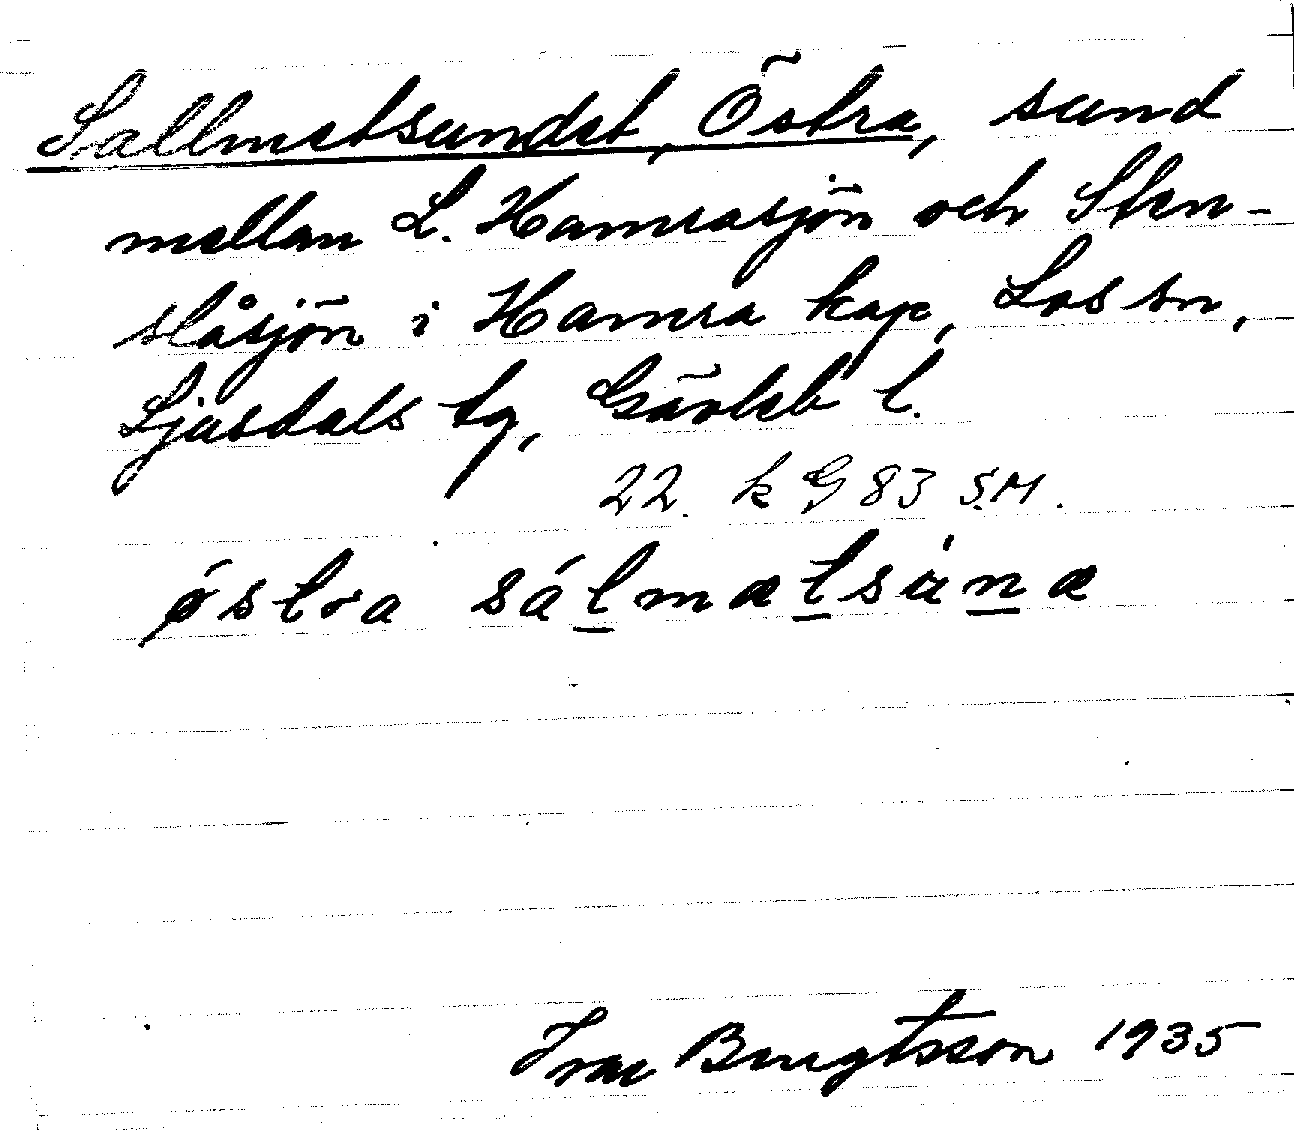 Sallmetsundet, Östra, sund
mellan L. Hamrasjön och Sten-
slåsjön i Hamra kap, Los sn,
Ljusdals tg, Gävleb l.
22. k G 83 S.M.
østra sálmætsùnæ
Ivar Bengtsson 1935